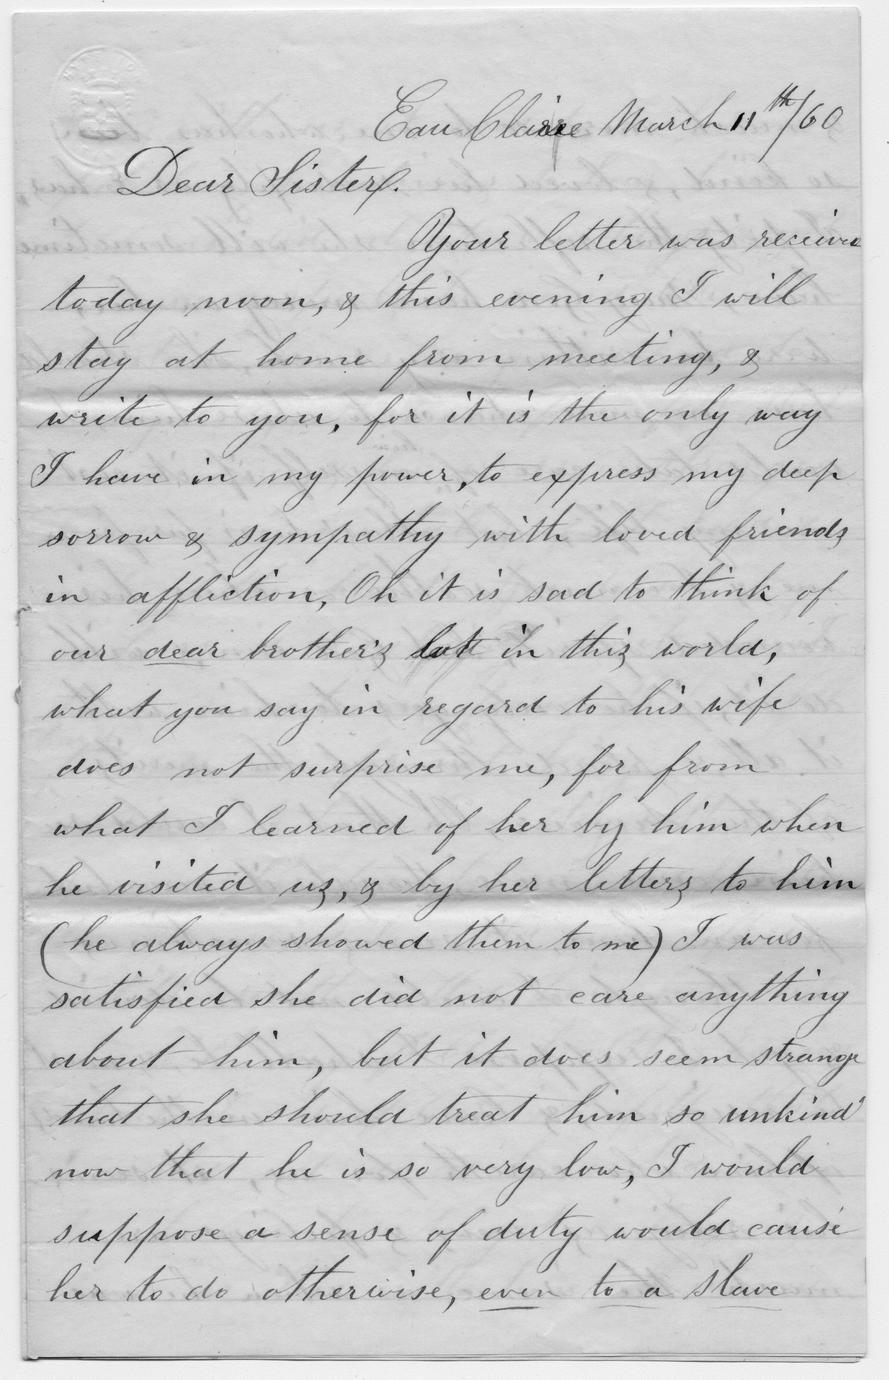 Eau Claire March 11th/60
Dear Sister.
Your letter was receive
today noon, & this evening I will
stay at home from meeting, &
write to you, for it is the only way
I have in my power, to express my deep
sorrow & sympathy with loved friends
in affliction, Oh it is sad to think of
our dear brother's lot in this world,
what you say in regard to his wife
does not surprise me, for from
what I learned of her by him when
he visited us, & by her letters to him
(he always showed them to me) I was
satisfied she did not care anything
about him, but it does seem strange
that she should treat him so unkind
now that he is so very low, I would
suppose a sense of duty would cause
her to do otherwise, even to a slave